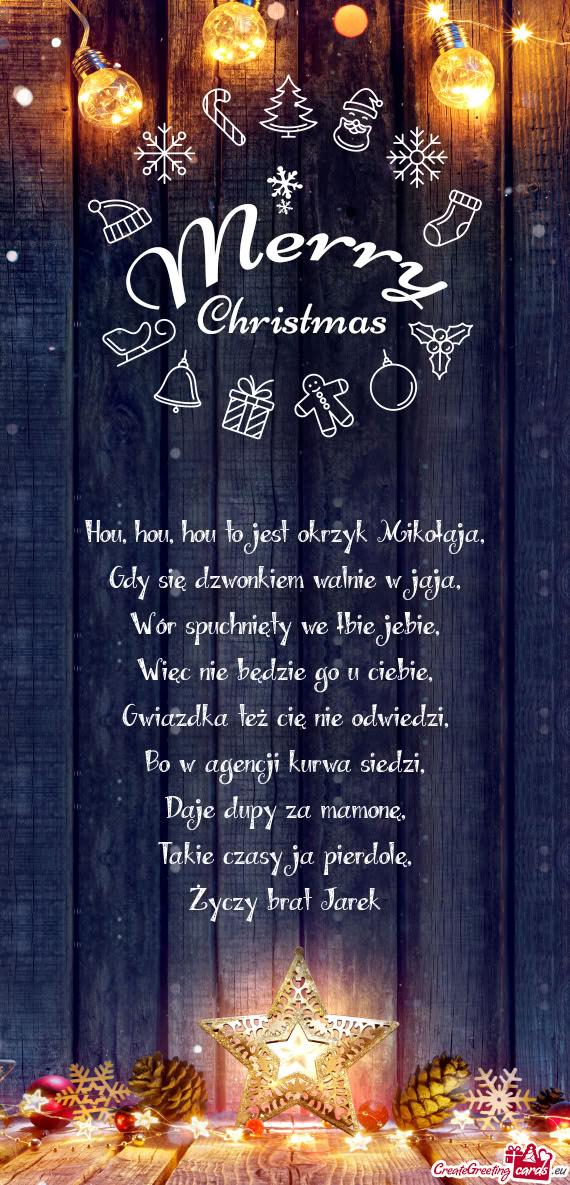 Merry
Christmas
Hou, hou, hou to jest okrzyk Mikołaja,
Gdy się dzwonkiem walnie w jaja,
Wór spuchnięty we łbie jebie,
Więc nie będzie go u ciebie,
Gwiazdka też cię nie odwiedzi,
Bo w agencji kurwa siedzi,
Daje dupy za mamonę,
Takie czasy ja pierdolę,
Życzy brat Jarek
CreateGreetingcards.eu